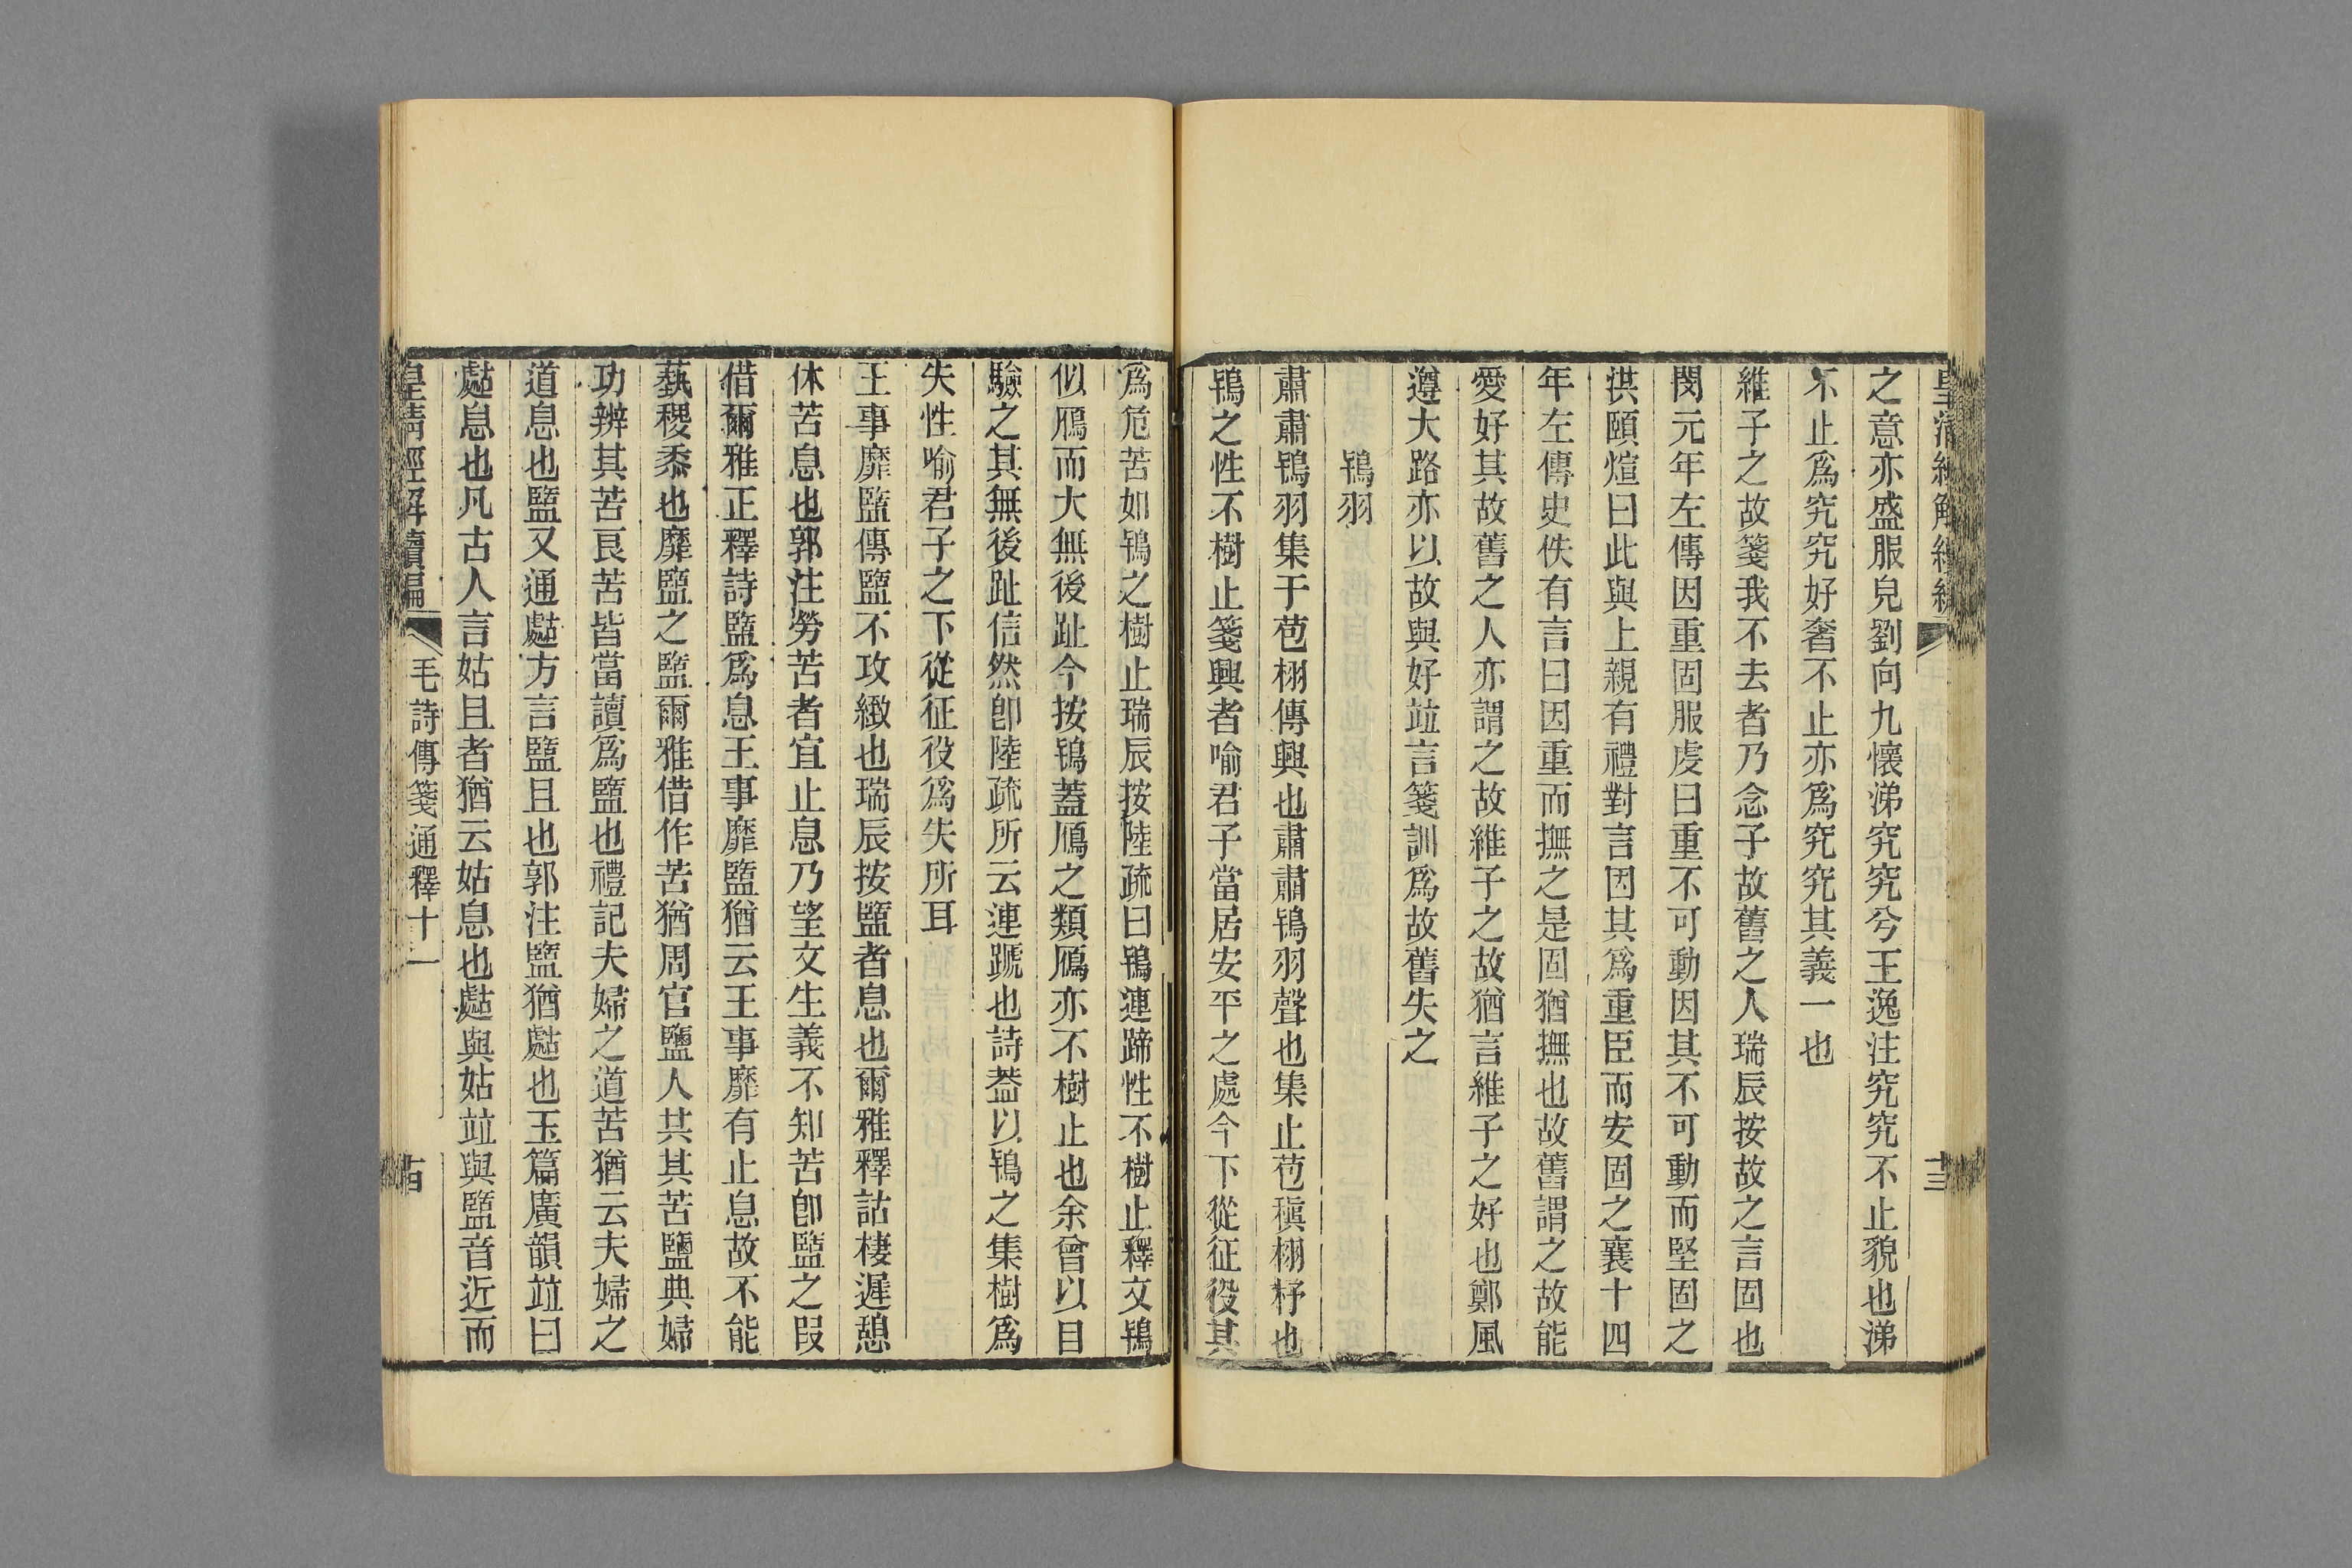 皇清經解續編
十三
之意亦盛服皃劉向九懷涕究究兮王逸注究究不止貌也涕
不止爲究究好奢不止亦爲究究其義一也
維子之故箋我不去者乃念子故舊之人瑞辰按故之言固也
閔元年左傳因重固服虔曰重不可動因其不可動而堅固之
洪頤煊曰此與上親有禮對言因其爲重臣而安固之襄十四
年左傳史佚有言曰因重而撫之是固猶撫也故舊謂之故能
愛好其故舊之人亦謂之故維子之故猶言維子之好也鄭風
遵大路亦以故與好竝言箋訓爲故舊失之
鴇羽
肅肅鴇羽集于苞栩傳興也肅肅鴇羽聲也集止苞稹栩杼也
鴇之性不樹止箋興者喻君子當居安平之處今下從征役其
爲危苦如鴇之樹止瑞辰按陸疏曰鴇連蹄性不樹止釋文鴇
似鴈而大無後趾今按鴇蓋鴈之類鴈亦不樹止也余曾以目
驗之其無後趾信然卽陸疏所云連蹏也詩葢以鴇之集樹爲
失性喻君子之下從征役爲失所耳
王事靡盬傳盬不攻緻也瑞辰按盬者息也爾雅釋詁棲遲憩
休苦息也郭注勞苦者宜止息乃望文生義不知苦卽盬之叚
借爾雅正釋詩盬爲息王事靡盬猶云王事靡有止息故不能
蓺稷黍也靡盬之盬爾雅借作苦猶周官鹽人共其苦鹽典婦
功辨其苦良苦皆當讀爲盬也禮記夫婦之道苦猶云夫婦之
道息也盬又通䀇方言盬且也郭注盬猶䀇也玉篇廣韻竝曰
䀇息也凡古人言姑且者猶云姑息也䀇與姑竝與盬音近而
皇清經解續編
毛詩傳箋通釋十一
十四